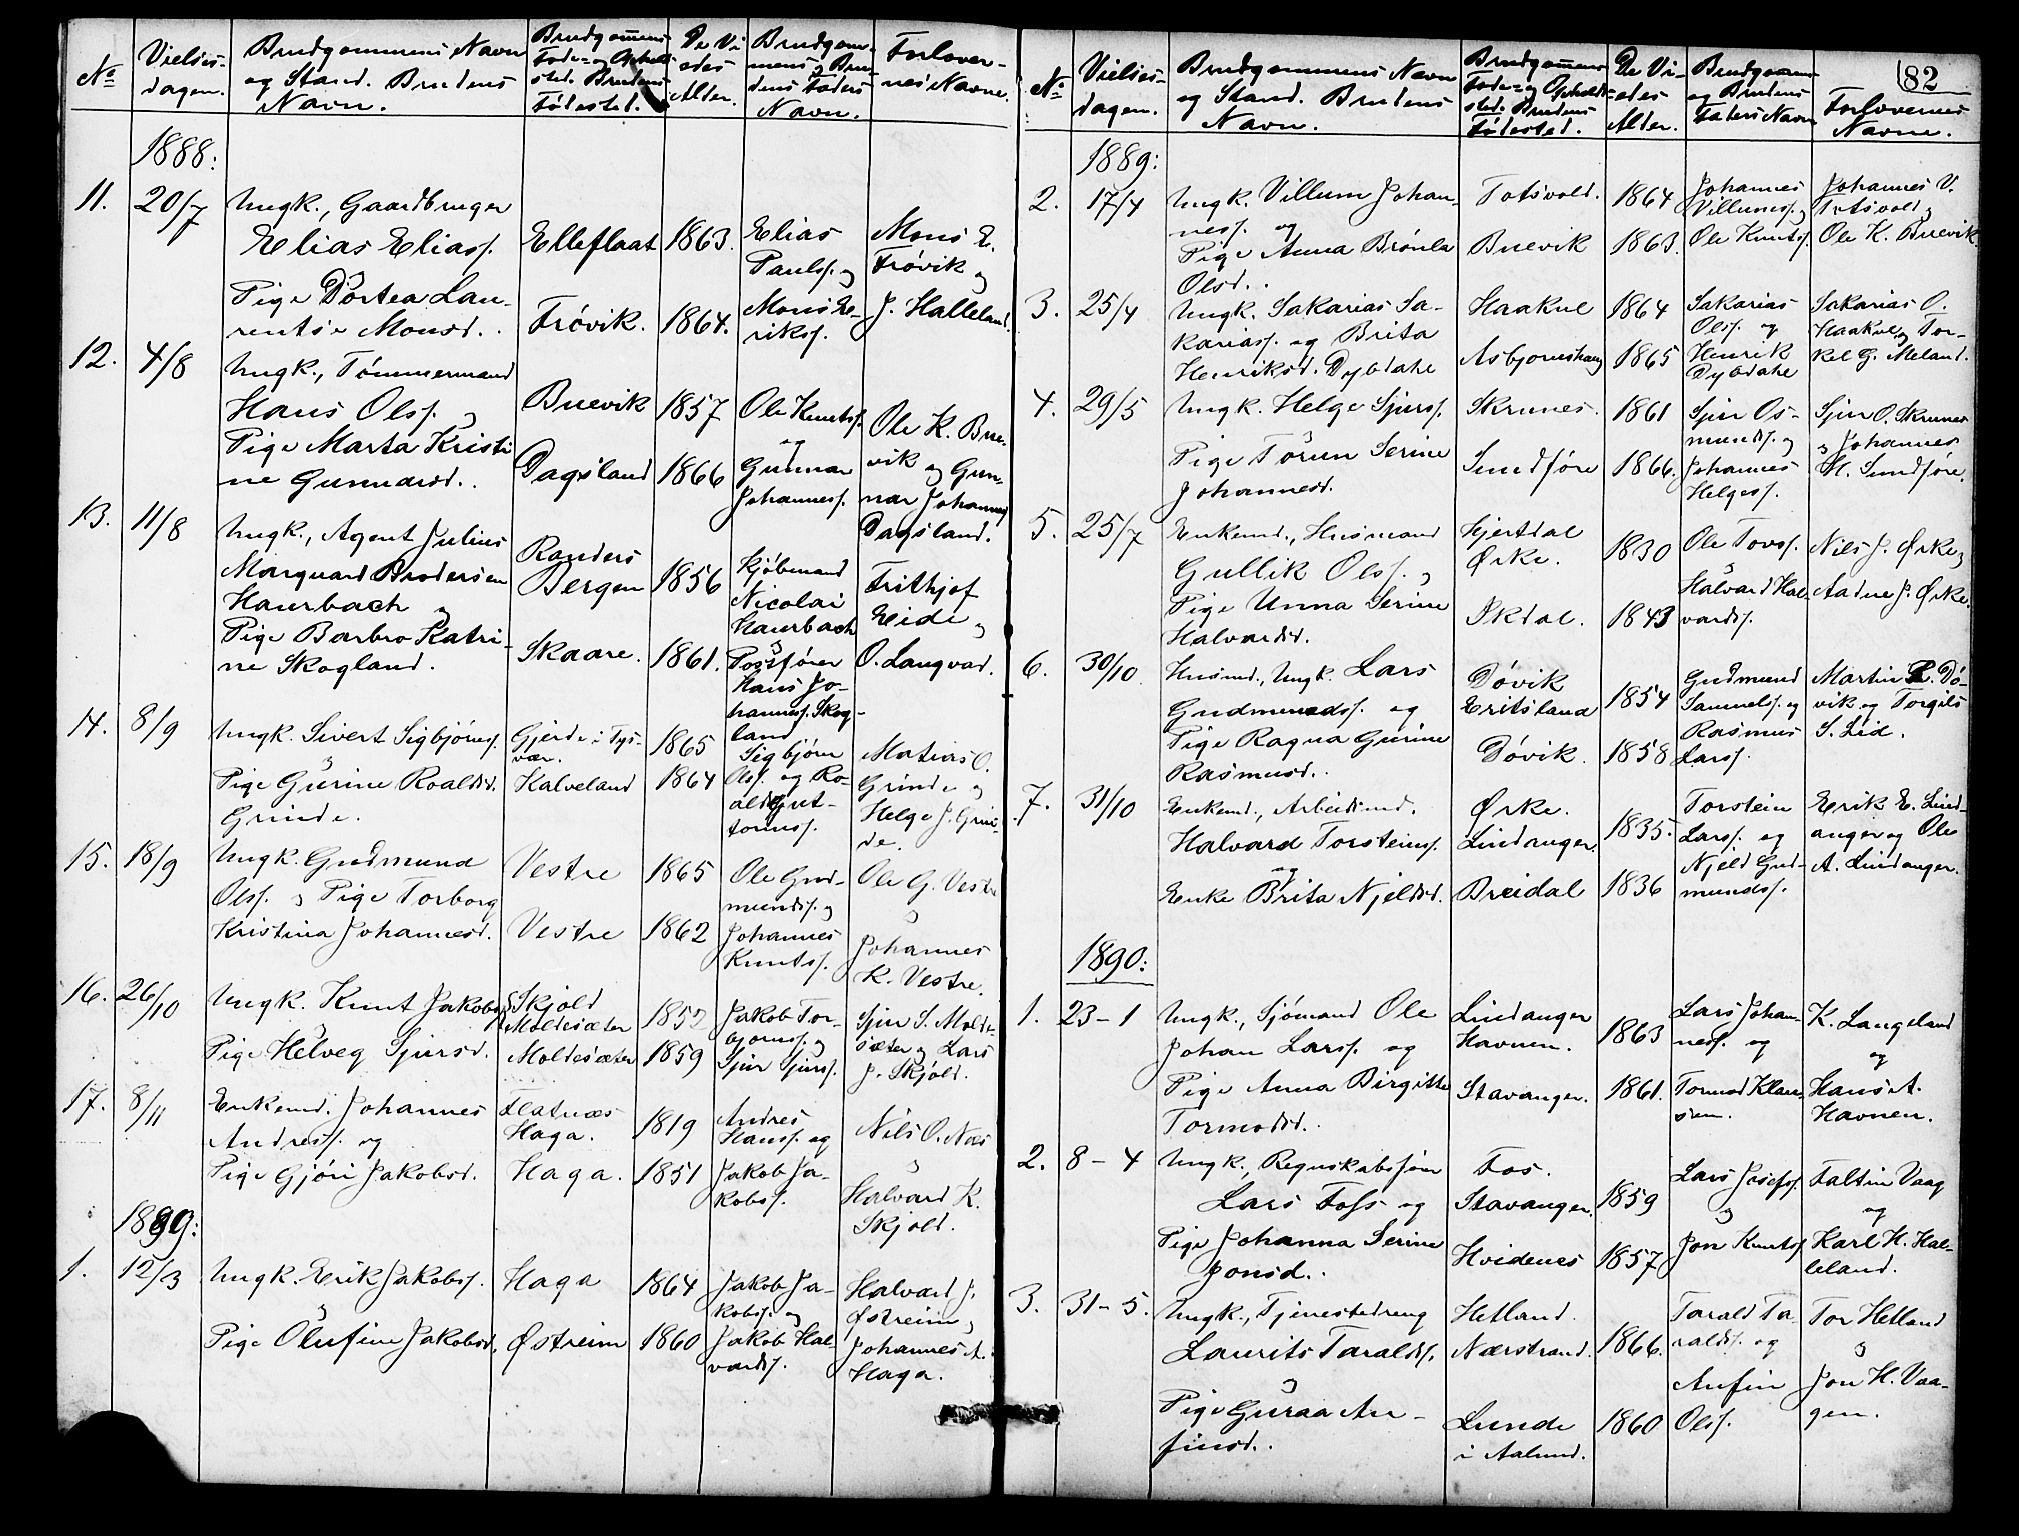 No
Vielses-
dagen.
Brudgommens Navn
og Stand. Brudens
Navn.
Brudgommens
Føde- og Opholds-
sted. Brudens
Fødested.
De Vi-
edes
Alder.
Brudgom-
mens og Bru-
dens Faders
Navn.
Forlover-
nes Navne.
1888:
11.
20/7
Ungk., Gaardbruger
Elias Eliass.
Pige Dortea Lau-
rentse Monsd.
Elleflaat
Frövik.
1863.
1864.
Elias
Paulss. og
Mons E-
rikss.
Mons E.
Frövik og
J. Halleland.
12.
4/8
Ungk., Tömmermand
Hans Olss. og
Pige Marta Kristi
ne Gunnarsd.
Buevik
Dagsland
1857
1866
Ole Knutss.
og
Gunnar
Johanness.
Ole K. Bue-
vik og Gun-
nar Johannes
Dagsland.
13.
11/8
Ungk., Agent Julius
Marquard Brodersen
Haurbach og
Pige Barbro Katri-
ne Skogland.
Randers
Bergen
Skaare.
1856
1861.
Kjøbmand
Nicolai
Haurbach
og
Postfører
Hans Jo-
hanness. Skog-
land
Frithjof
Eide og
O. Langvad.
14.
8/9
Ungk. Sivert Sigbjörns.
Pige Gurine Roaldsd.
Grinde.
Gjerde i Tys-
vær.
Kalveland
1865
1864
Sigbjörn
Olss. og Ro-
ald Gut-
tormss.
Matias O.
Grinde og
Helge J. Grin-
de.
15.
18/9
Ungk. Gudmund
Olss. og Pige Torborg
Kristina Johannesd.
Vestre
Vestre
1865
1862
Ole Gud-
mundss. og
Johannes
Knutss.
Ole G. Vestre
og
Johannes
K. Vestre.
16.
26/10
Ungk. Knut Jakobss.
Pige Helveg Sjursd.
Skjold
Moldesæter
Moldesæter
1852
1859
Jakob Tor-
bjornss. og
Sjur Sjurss.
Sjur S. Molde-
sæter og Lars
J. Skjold.
17.
8/11
Enkemd. Johannes
Andress. og
Pige Gjöri Jakobsd.
Flatnæs
Haga.
Haga.
1819
1851
Andres
Hanss. og
Jakob Ja-
kobss.
Nils O. Næs
og
Halvard K.
Skjold.
1889:
1.
12/3
Ungk. Erik Jakobss.
Pige Olufine Jakobsd.
Haga
Østreim
1864
1860
Jakob Ja-
kobss. og
Jakob Hal-
vardss.
Halvard J.
Østreim og
Johannes A.
Haga.
82
No
Vielses-
dagen.
Brudgommens Navn
og Stand. Brudens
Navn.
Brudgommens
Føde- og Opholds-
sted. Brudens
Fødested.
De Vi-
edes
Alder.
Brudgommens
og Brudens
Faders Navn
Forlovernes
Navne.
1889:
2.
17/4
Ungk. Villum Johan-
ness. og
Pige Anna Brönla
Olsd.
Totsvold.
Buevik
1864
1863.
Johannes
Villumss. og
Ole Knutss.
Johannes V.
Totsvold og
Ole K. Buevik.
3.
25/4
Ungk. Sakarias Sa-
kariass. og Brita
Henriksd. Dybdahl
Haakul
Asbjornshaug
1864
1865
Sakarias
Olss. og
Henrik
Dybdahl
Sakarias O.
Haakul og Tor-
kel G. Meland.
4.
29/5
Ungk. Helge Sjurss.
Pige Torun Serine
Johannesd.
Skrunes.
Sundföre
1861
1866.
Sjur Os-
mundss. og
Johannes
Helgess.
Sjur O. Skrunes
og Johannes
H. Sundföre.
5.
25/7
Enkemd., Husmand
Gullik Olss. og
Pige Unna Serine
Halvardsd.
Hjertdal
Ørke.
Økdal.
1830
1843
Ole Tovss.
Halvard Hal-
vardss.
Nils J. Ørke og
Aadne J. Ørke.
6.
30/10
Husmd., Ungk. Lars
Gudmundss. og
Pige Ragna Gurine
Rasmusd.
Dövik
Eritsland
Dövik.
1854
1858
Gudmund
Samuelss. og
Rasmus
Larss.
Martin R. Dö-
vik og Torgils
S. Lid.
7.
31/10
Enkemd., Arbeidsmd.
Halvard Torsteinss.
og
Enke Brita Njeldsd.
Ørke.
Lindanger.
Breidal
1835.
1836
Torstein
Larss. og
Njeld Gud-
mundss.
Erik E. Lind-
anger og Ole
A. Lindanger.
1890:
1.
23-1
Ungk., Sjömand Ole
Johan Larss. og
Pige Anna Birgitte
Tormodsd.
Lindanger
Havnen.
Stavanger.
1863
1861.
Lars Johan-
ness. og
Tormod Klau-
sen.
K. Langeland
og
Hans A.
Havnen.
2.
8-4
Ungk., Regnskabsförer
Lars Foss og
Pige Johanna Serine
Jonsd.
Fos.
Stavanger.
Hvidenes
1859
1857
Lars Josefss.
og
Jon Knutss.
Faltin Vaag
og
Karl H. Hal-
leland.
3.
31-5.
Ungk., Tjenestedreng
Laurits Taraldss.
og
Pige Guraa An-
finsd.
Hetland.
Nærstrand.
Lunde
i Aalund.
1866.
1860
Tarald Ta-
raldss. og
Anfin
Olss.
Tor Hetland
og
Jon H. Vaa-
gen.